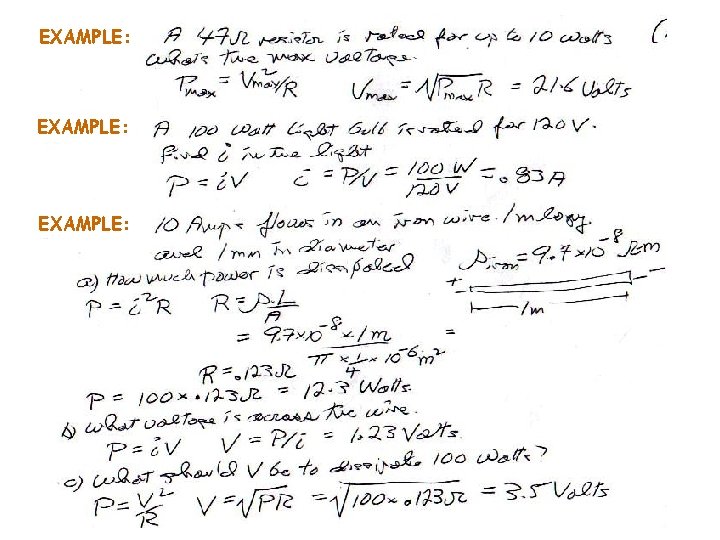 EXAMPLE: A 47Ω resistor is rated for up to 10 watts (.
what is the max voltage.
Pmax = Vmax²/R Vmax = √Pmax R = 21.6 Volts
EXAMPLE: A 100 watt light bulb is rated for 120 V.
find i in the light
P = iV i = P/V = 100 W / 120 V = .83 A
EXAMPLE: 10 Amps flows in an iron wire 1m long,
and 1mm in diameter
ρiron = 9.7×10⁻⁸ Ωm
a) How much power is dissipated
+ -
P = i²R R = ρL/A
1m
= 9.7×10⁻⁸ × 1m / π × 1/4 × 10⁻⁶ m² =
R = .123Ω
P = 100 × .123Ω = 12.3 Watts.
b) what voltage is across the wire.
P = iV V = P/i = 1.23 Volts.
c) what should V be to dissipate 100 watts?
P = V²/R V = √PR = √100 × .123Ω = 3.5 Volts